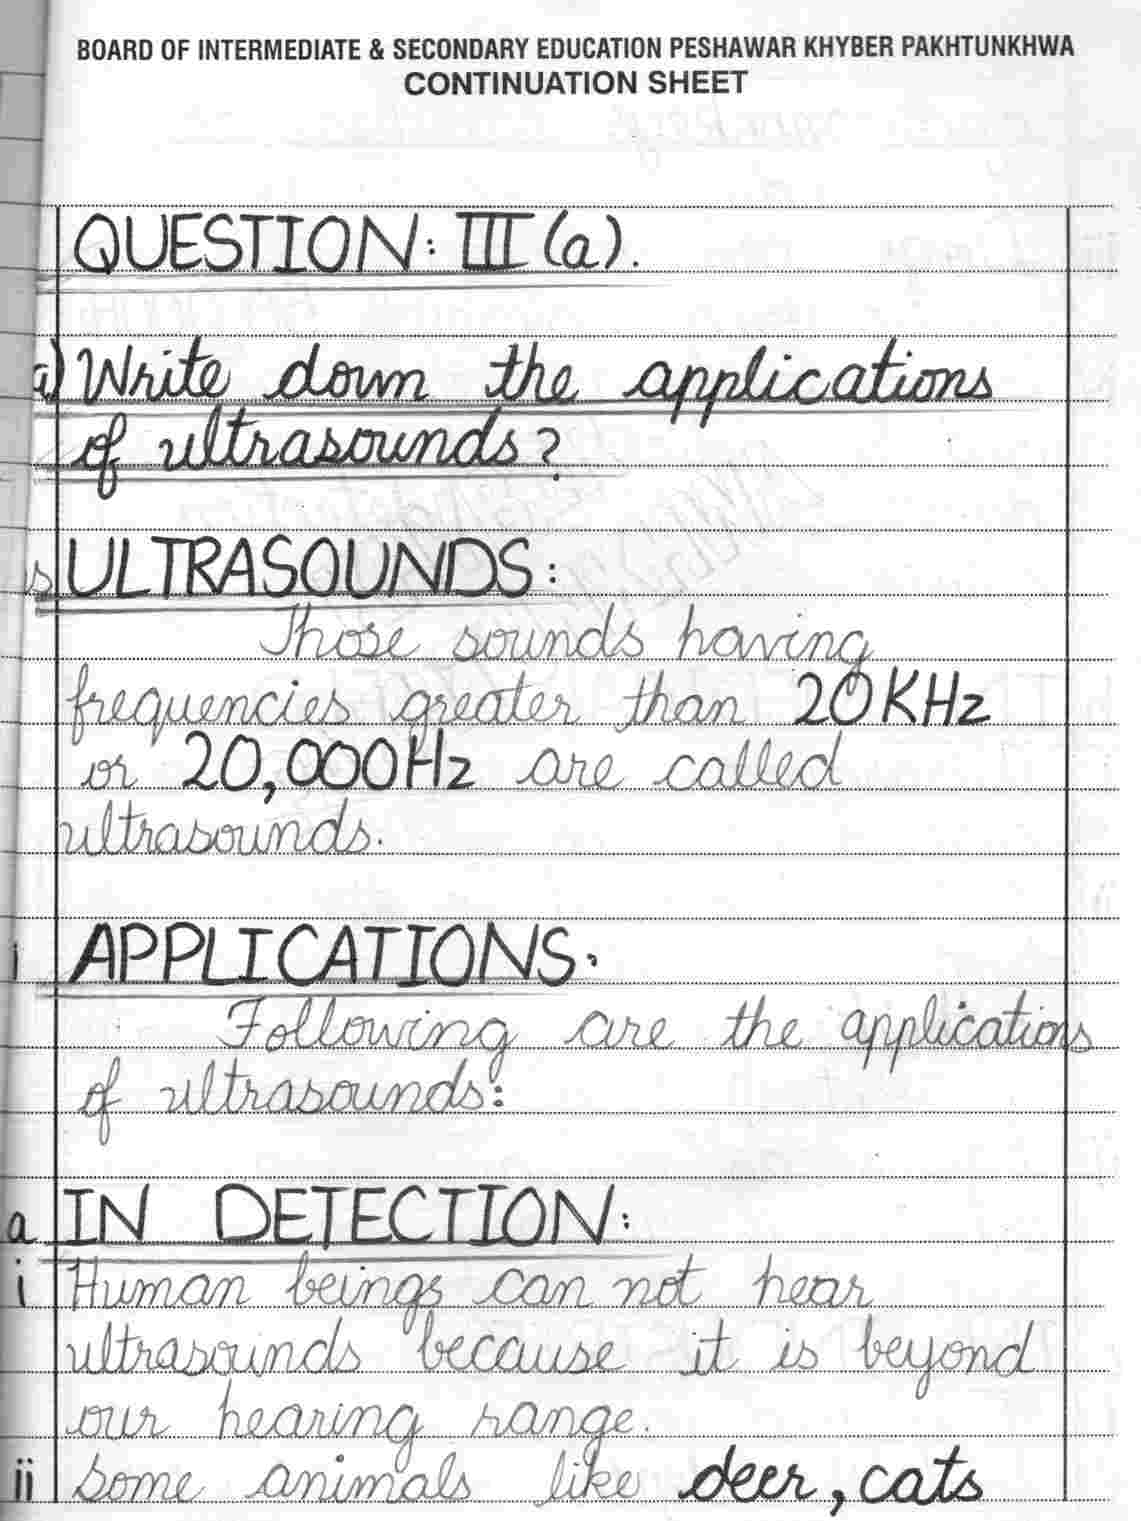 BOARD OF INTERMEDIATE & SECONDARY EDUCATION PESHAWAR KHYBER PAKHTUNKHWA
CONTINUATION SHEET
QUESTION: III (a).
a) Write down the applications
of ultrasounds?
ULTRASOUNDS:
Those sounds having
frequencies greater than 20KHz
or 20,000Hz are called
ultrasounds.
i APPLICATIONS:
Following are the applications
of ultrasounds:
a IN DETECTION:
i Human beings can not hear
ultrasounds because it is beyond
our hearing range.
ii Some animals like deer, cats